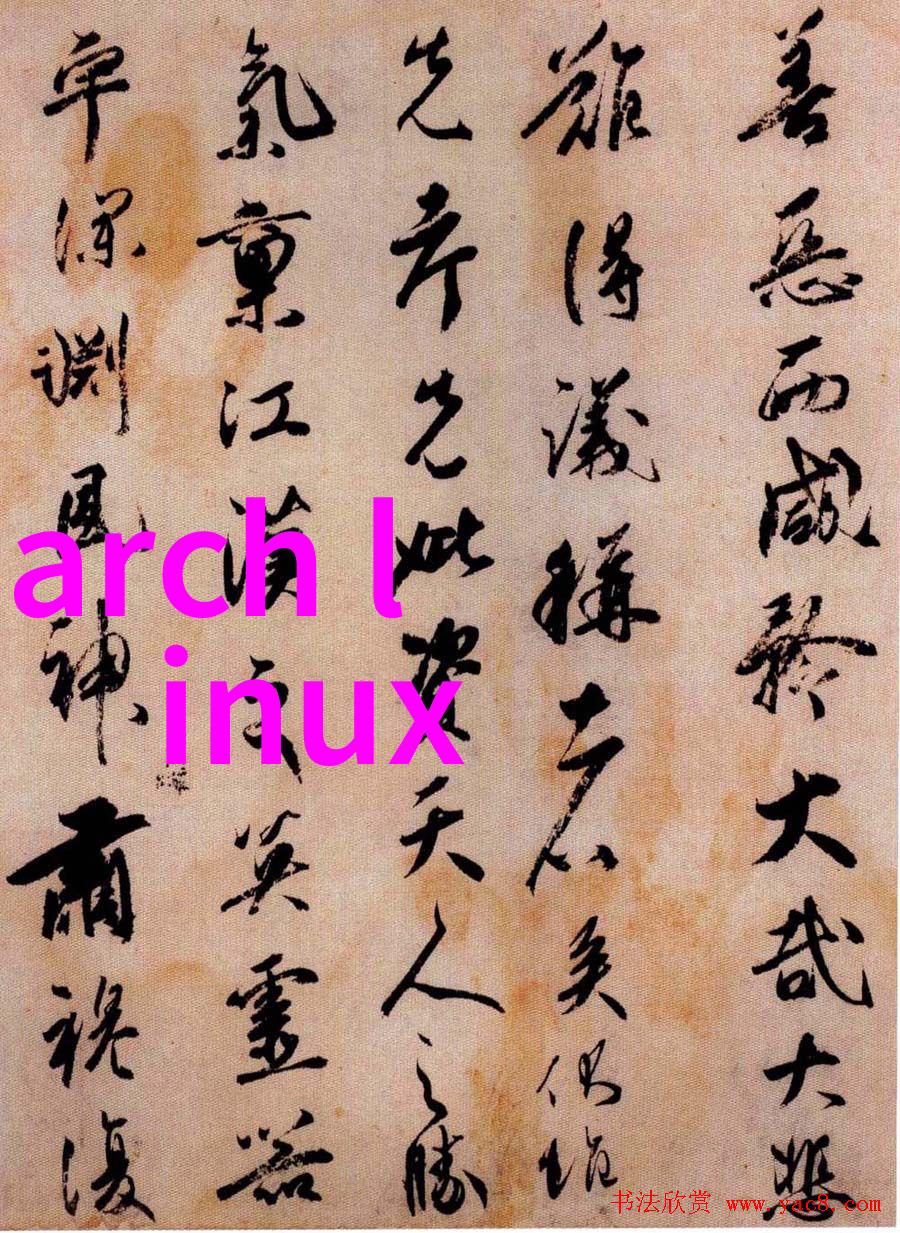 善惡而咸矜大哉大悲
難得議稱者矣伏惟
先考先妣資天人之勝
氣稟江漢之英靈器
宇深淵風神肅穆復
arch l
inux
书法欣赏 www.yac8.com